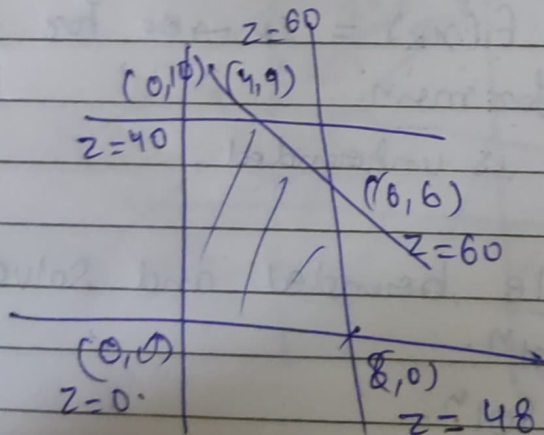 z=60
(4,9)
z=40
(6,6)
z=60
(0,0)
z=0.
z=48